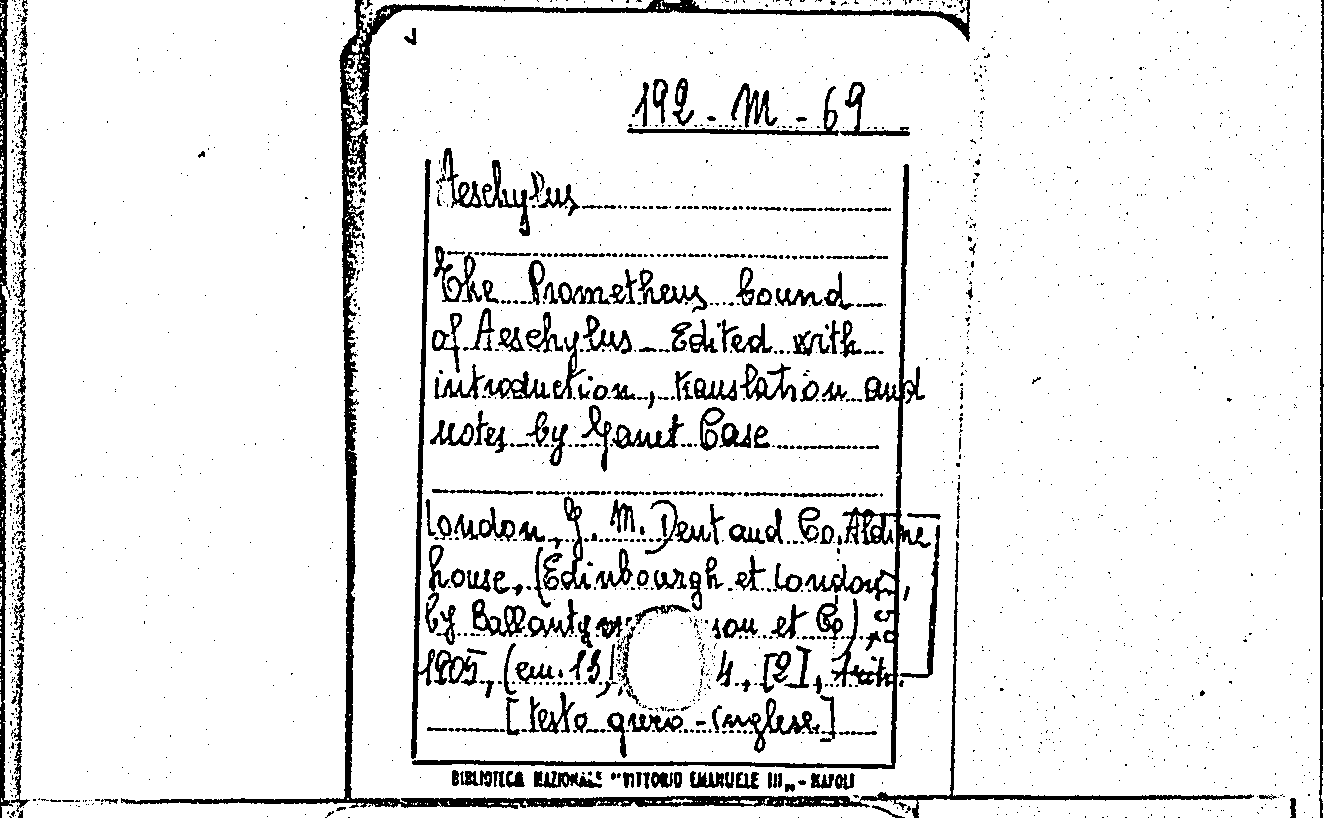 192 - M - 69
Aeschylus
The Prometheus bound
of Aeschylus. Edited with
introduction, translation and
notes by Janet Case
London, J. M. Dent and Co. Aldine
house, (Edinbourgh et London,
by Ballanty son et Co),
1905, (cm. 13, 4, [2],
[testo greco-inglese]
BIBLIOTECA NAZIONALE "VITTORIO EMANUELE III„ - NAPOLI